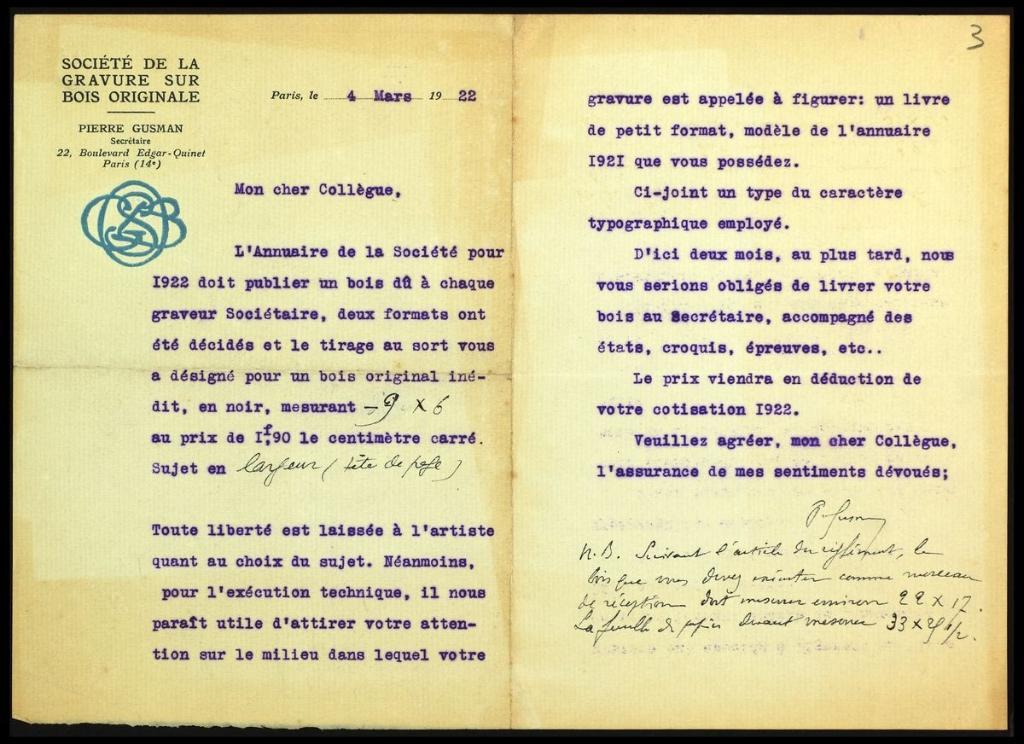 SOCIÉTÉ DE LA
GRAVURE SUR
BOIS ORIGINALE
PIERRE GUSMAN
Secrétaire
22, Boulevard Edgar-Quinet
Paris (14e)
Paris, le 4 Mars 19 22
Mon cher Collègue,
L'Annuaire de la Société pour
I922 doit publier un bois dû à chaque
graveur Sociétaire, deux formats ont
été décidés et le tirage au sort vous
a désigné pour un bois original iné-
dit, en noir, mesurant - 9 x 6
au prix de If,90 le centimètre carré.
Sujet en largeur (tête de page)
Toute liberté est laissée à l'artiste
quant au choix du sujet. Néanmoins,
pour l'exécution technique, il nous
paraît utile d'attirer votre atten-
tion sur le milieu dans lequel votre
3
gravure est appelée à figurer: un livre
de petit format, modèle de l'annuaire
I92I que vous possédez.
Ci-joint un type du caractère
typographique employé.
D'ici deux mois, au plus tard, nous
vous serions obligés de livrer votre
bois au Secrétaire, accompagné des
états, croquis, épreuves, etc..
Le prix viendra en déduction de
votre cotisation I922.
Veuillez agréer, mon cher Collègue,
l'assurance de mes sentiments dévoués;
P. Gusman
N.B. Suivant l'article du règlement, le
bois que vous devez exécuter comme morceau
de réception doit mesurer environ 22 x 17.
La feuille de papier devant mesurer 33 x 25 1/2.